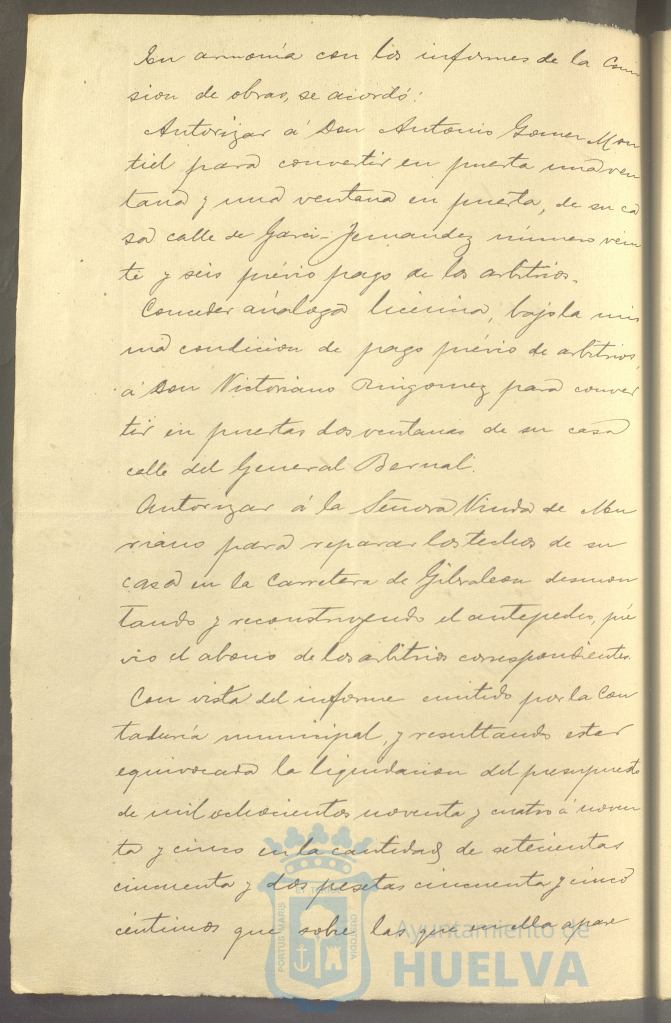 En armonía con los informes de la Comi
sion de obras, se acordó:
Autorizar á Don Antonio Gomez Mon
tiel para convertir en puerta una ven
tana y una ventana en puerta, de su ca
sa calle de Garci-Fernandez número vein
te y seis prévio pago de los arbitrios.
Conceder análoga licencia, bajo la mis
ma condicion de pago prévio de arbitrios,
á Don Victoriano para conver
tir en puertas dos ventanas de su casa
calle del General Bernal.
Autorizar á la Señora Viuda de Mu
riano para reparar los techos de su
casa en la Carretera de Gibraleon desmon
tando y reconstruyendo el antepecho, pré
vio el abono de los arbitrios correspondientes.
Con vista del informe emitido por la Con
taduría municipal, y resultando estar
equivocada la liquidacion del presupuesto
de mil ochocientos noventa y cuatro á noven
ta y cinco en la cantidad de setecientas
cincuenta y dos pesetas cincuenta y cinco
céntimos que sobre las que en ella apare
PORTUS MARIS
ET TERRÆ
CUSTODIA
Ayuntamiento de
HUELVA